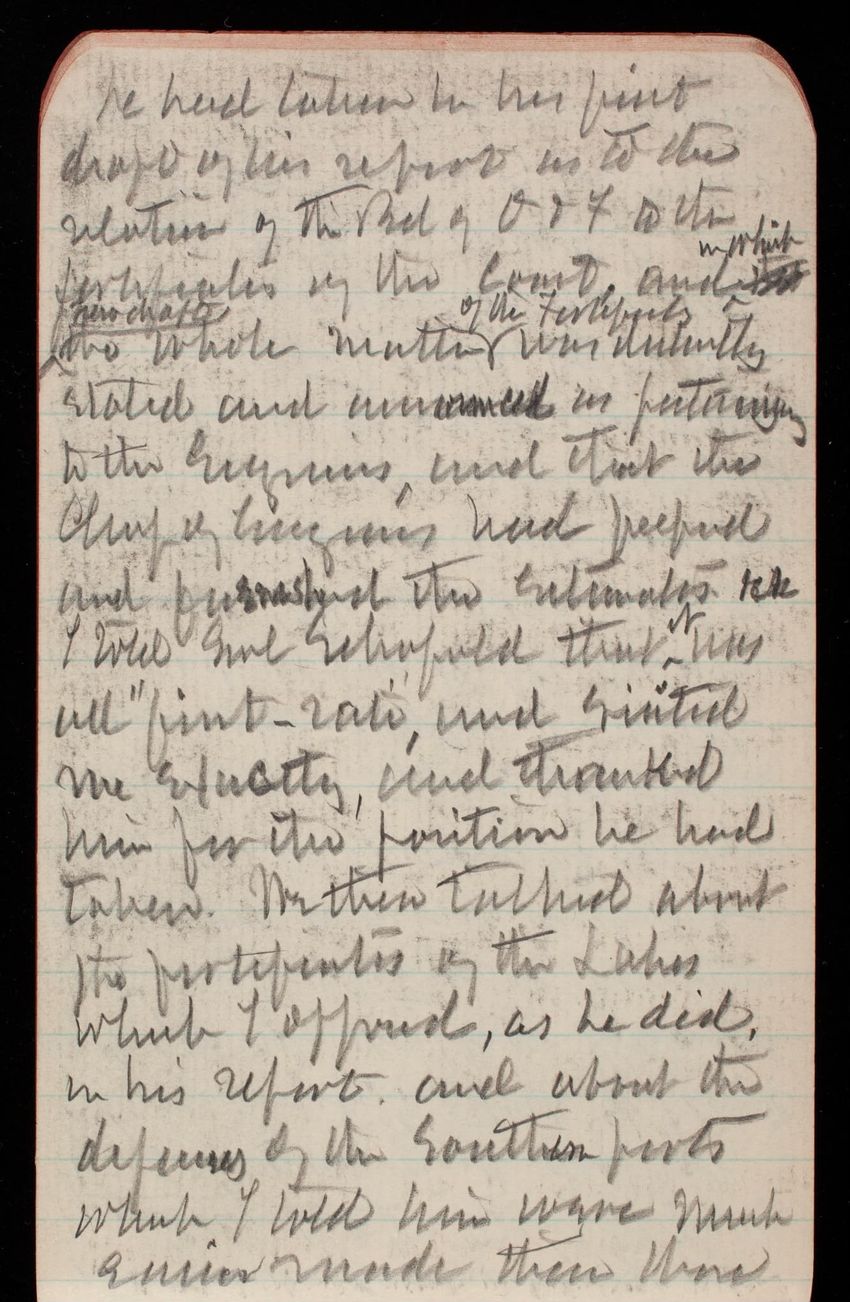 he had taken in his first
draft of his report as to the
relation of the Bd of O & F to the
fortificates of the Coast, and in which
new draft
of the Fortificats
the whole matter was distinctly
stated and announced as pertaining
to the Engineers, and that the
Chief of Engineers had prepared
and furnished the Estimates
I told Genl Schofield that it was
all "first-rate", and suited
me exactly, and thanked
him for the position he had
taken. We then talked about
the fortificates of the Lakes
which I opposed, as he did,
in his report. and about the
defenses of the Southern ports
which I told him were much
easier made than those